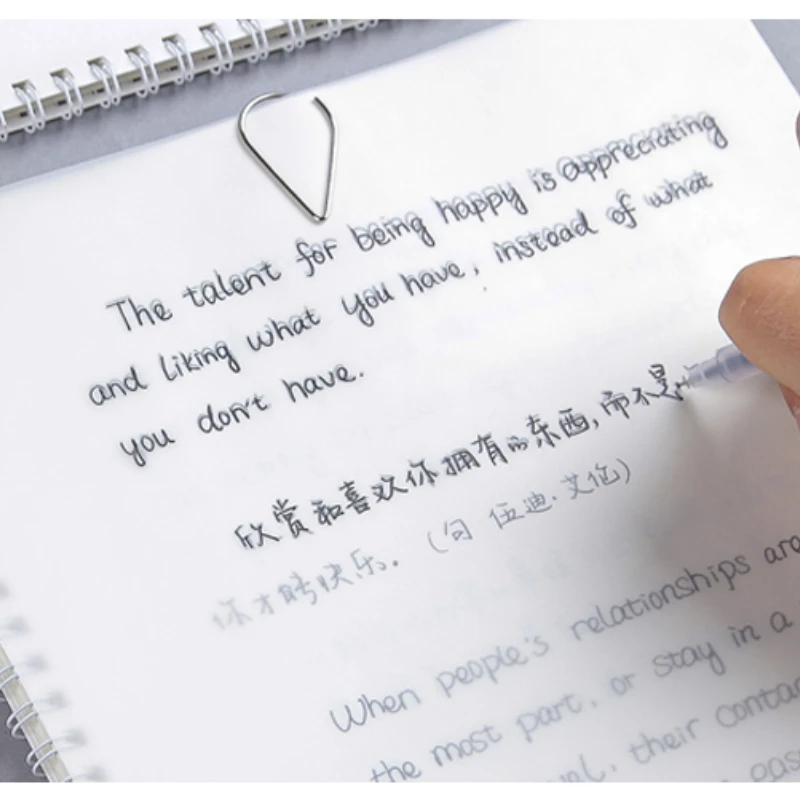 The talent for being happy is appreciating
and liking what you have, instead of what
you don't have.
欣赏和喜欢你拥有的东西,而不是
你才能快乐。(句 伍迪·艾伦)
When people's relationships are
the most part, or stay in a
their